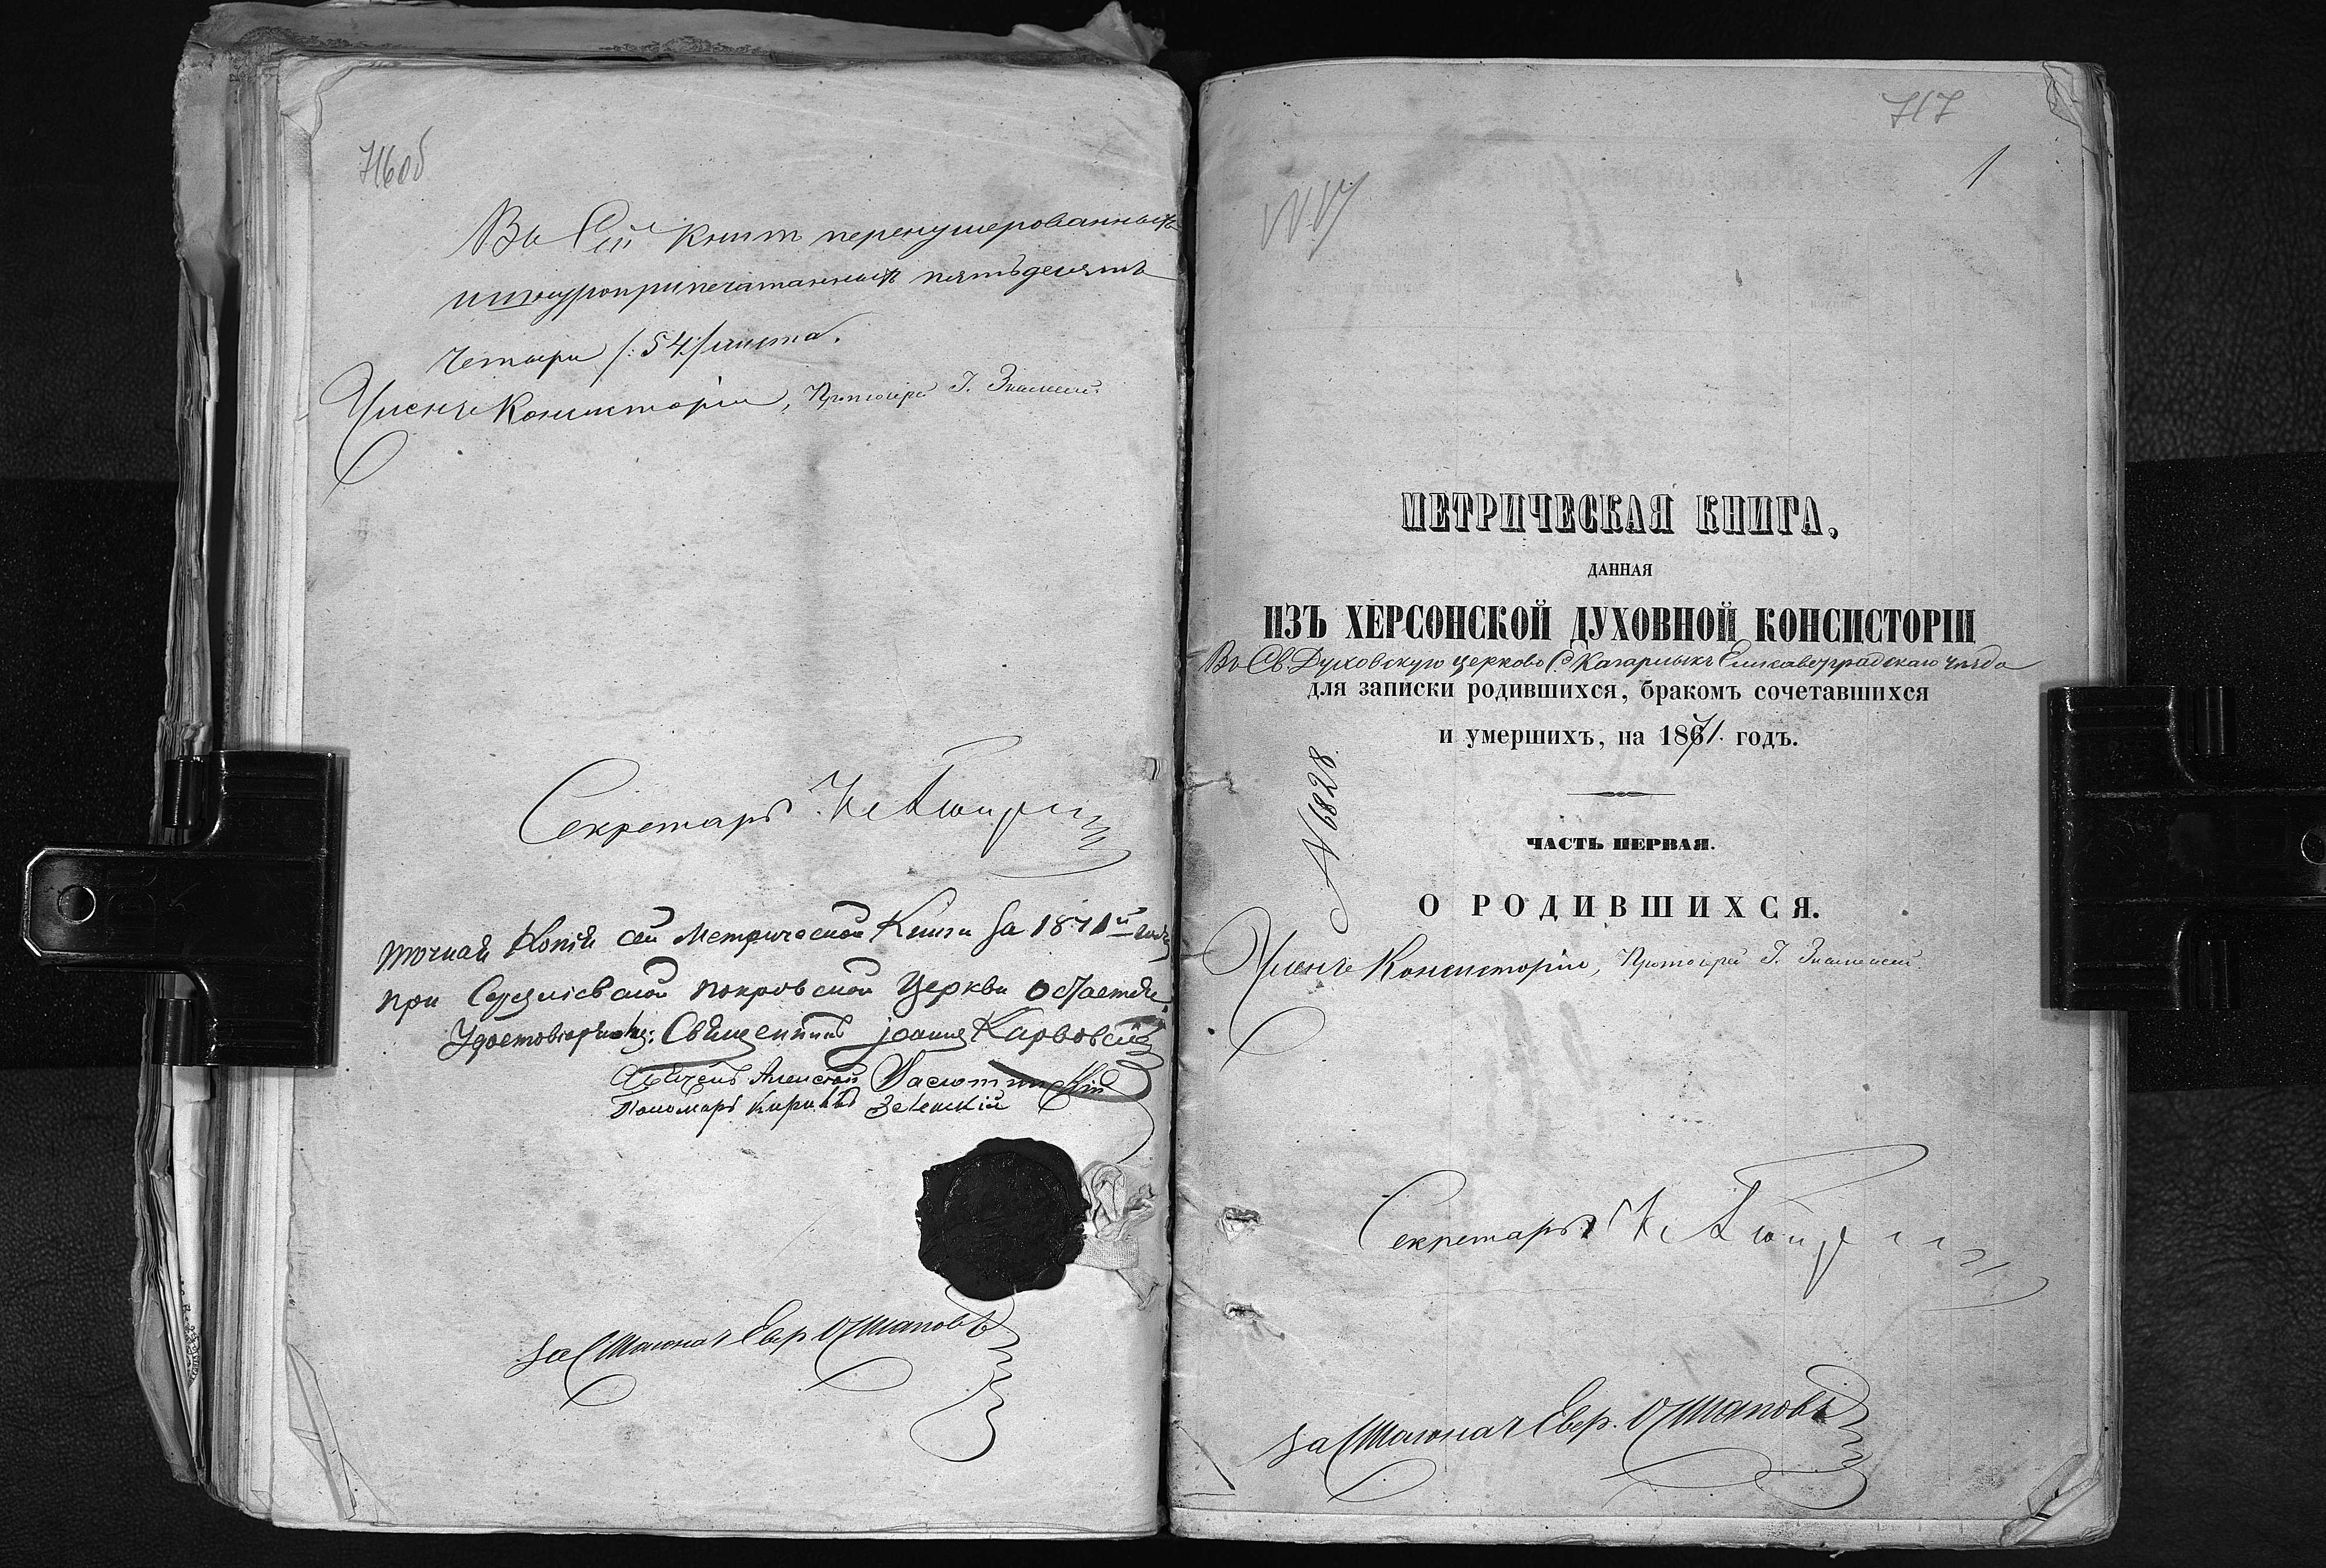 716об
Въ сей книгѣ перенумерованныхъ
и шнуроприпечатанныхъ пятьдесятъ
четыре /:54:/ листа.
Членъ Консисторіи, Протоіерей І. Знаменскій
Секретарь
Точная Копія сей Метрической Книги за 1871й годъ
при Покровской Церкви остается.
Священникъ Іоаннъ Карвовскій
Алексѣй
Пономарь Зеленскій
За Столонач. Евер. Остаповъ
717
1
МЕТРИЧЕСКАЯ КНИГА,
ДАННАЯ
ИЗЪ ХЕРСОНСКОЙ ДУХОВНОЙ КОНСИСТОРІИ
Въ Св. Духовскую церковь С. Кагарлыкъ Елисаветградскаго уѣзда
для записки родившихся, бракомъ сочетавшихся
и умершихъ, на 1871 годъ.
№ 6828.
ЧАСТЬ ПЕРВАЯ.
О РОДИВШИХСЯ.
Членъ Консисторіи, Протоіерей І. Знаменскій.
Секретарь
За Столонач. Евер. Остаповъ